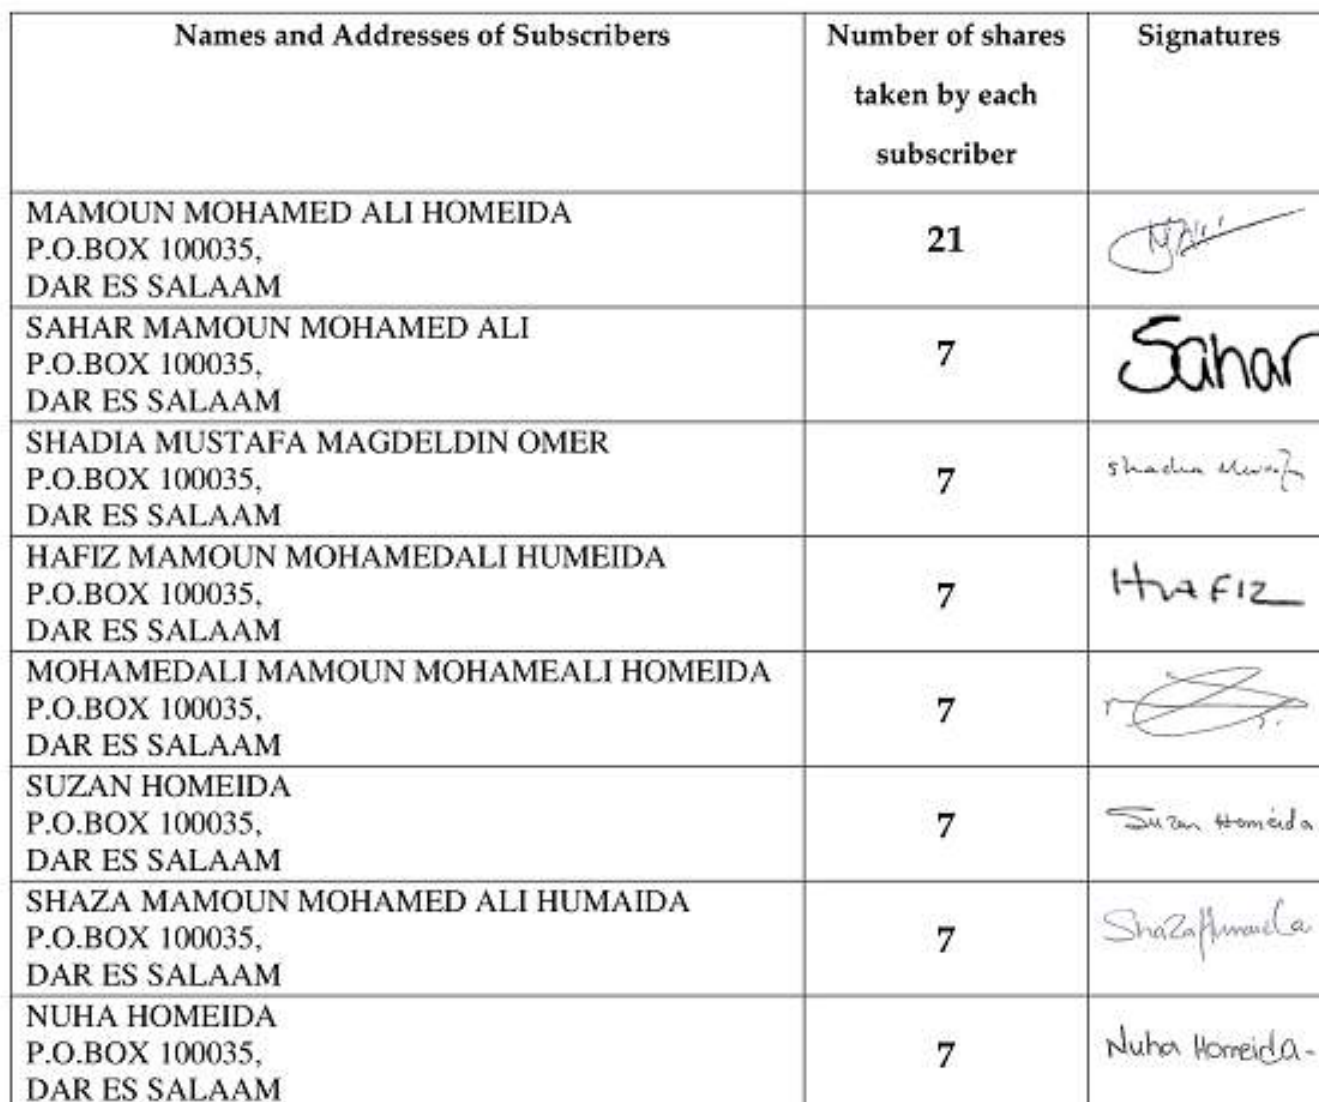 Names and Addresses of Subscribers
Number of shares
taken by each
subscriber
Signatures
MAMOUN MOHAMED ALI HOMEIDA
P.O.BOX 100035,
DAR ES SALAAM
21
SAHAR MAMOUN MOHAMED ALI
P.O.BOX 100035,
DAR ES SALAAM
7
Sahar
SHADIA MUSTAFA MAGDELDIN OMER
P.O.BOX 100035,
DAR ES SALAAM
7
Shadia
HAFIZ MAMOUN MOHAMEDALI HUMEIDA
P.O.BOX 100035,
DAR ES SALAAM
7
HAFIZ
MOHAMEDALI MAMOUN MOHAMEALI HOMEIDA
P.O.BOX 100035,
DAR ES SALAAM
7
SUZAN HOMEIDA
P.O.BOX 100035,
DAR ES SALAAM
7
Suzan Homeida
SHAZA MAMOUN MOHAMED ALI HUMAIDA
P.O.BOX 100035,
DAR ES SALAAM
7
Shaza Humaida
NUHA HOMEIDA
P.O.BOX 100035,
DAR ES SALAAM
7
Nuha Homeida-